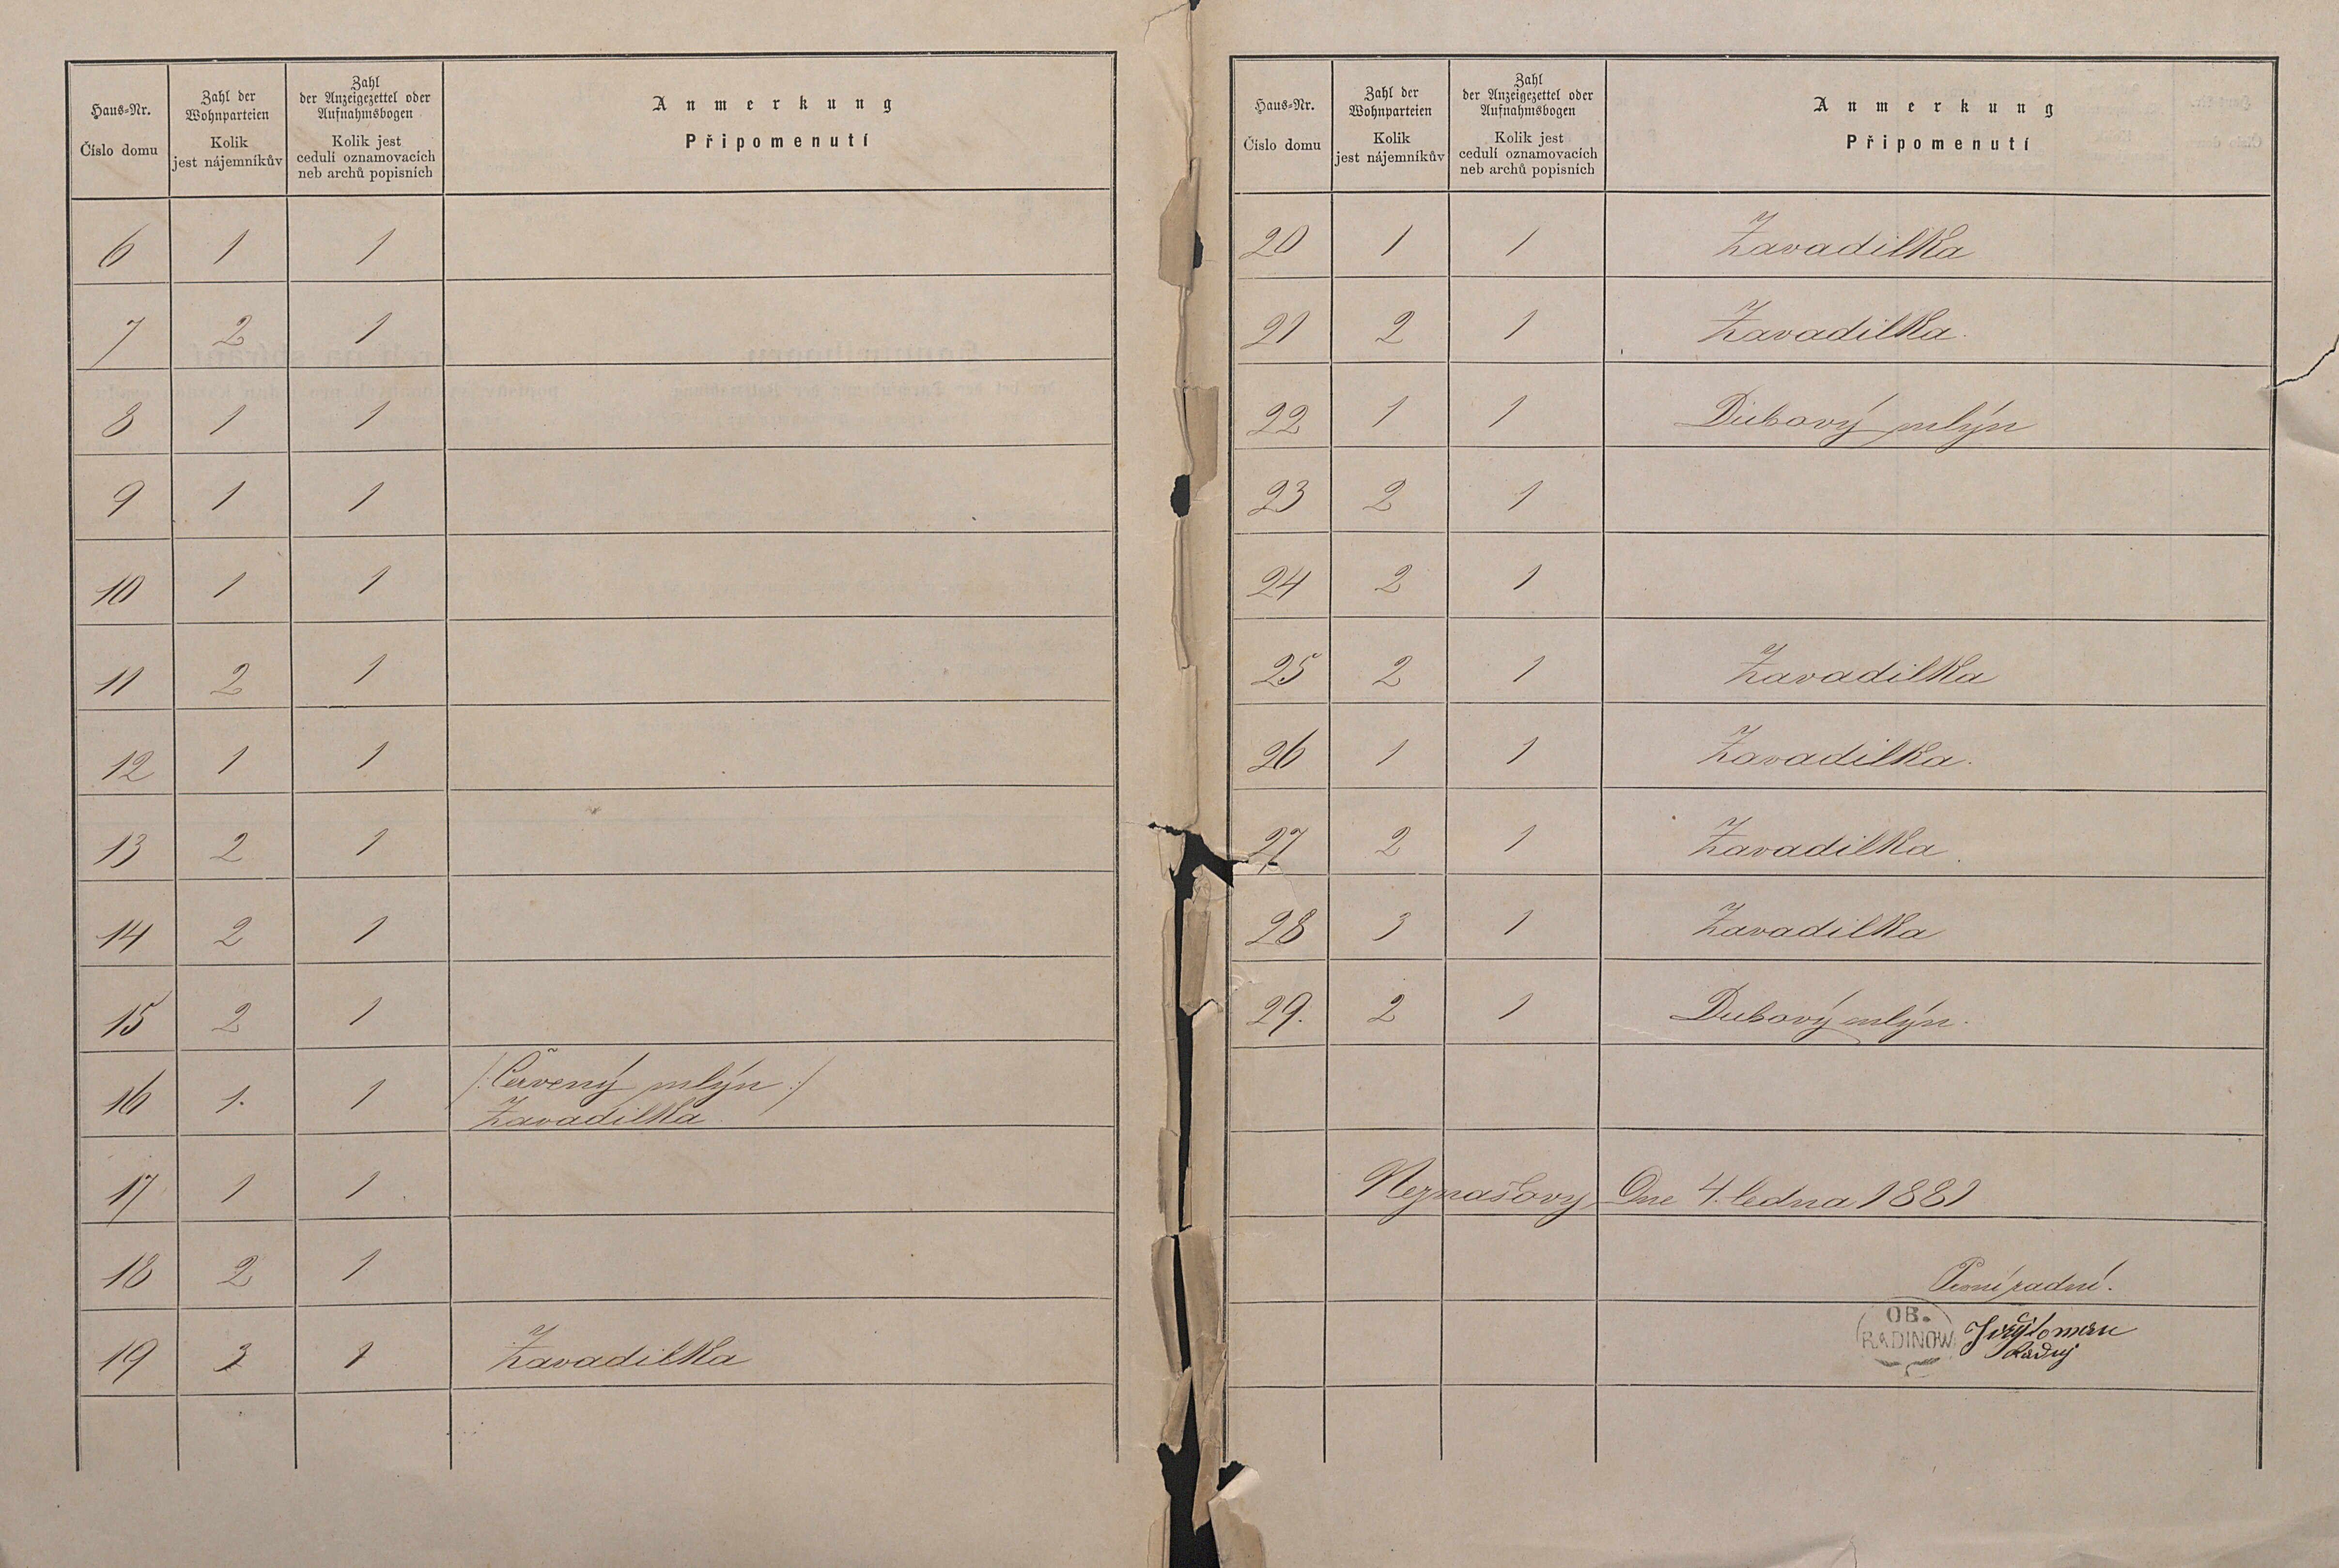 Haus-Nr.
Číslo domu
Zahl der
Wohnparteien
Kolik
jest nájemníkův
Zahl
der Anzeigezettel oder
Aufnahmsbogen
Kolik jest
cedulí oznamovacích
neb archů popisních
Anmerkung
Připomenutí
6 1 1
7 2 1
8 1 1
9 1 1
10 1 1
11 2 1
12 1 1
13 2 1
14 2 1
15 2 1
16 1. 1 /: Červený mlýn :/
Zavadilka
17 1 1
18 2 1
19 3 1 Zavadilka
Haus-Nr.
Číslo domu
Zahl der
Wohnparteien
Kolik
jest nájemníkův
Zahl
der Anzeigezettel oder
Aufnahmsbogen
Kolik jest
cedulí oznamovacích
neb archů popisních
Anmerkung
Připomenutí
20 1 1 Zavadilka
21 2 1 Zavadilka.
22 1 1 Dubový mlýn
23 2 1
24 2 1
25 2 1 Zavadilka
26 1 1 Zavadilka.
27 2 1 Zavadilka.
28 3 1 Zavadilka
29. 2 1 Dubový mlýn.
Neznašovy Dne 4. ledna 1881
První radní.
OB.
RADINOW